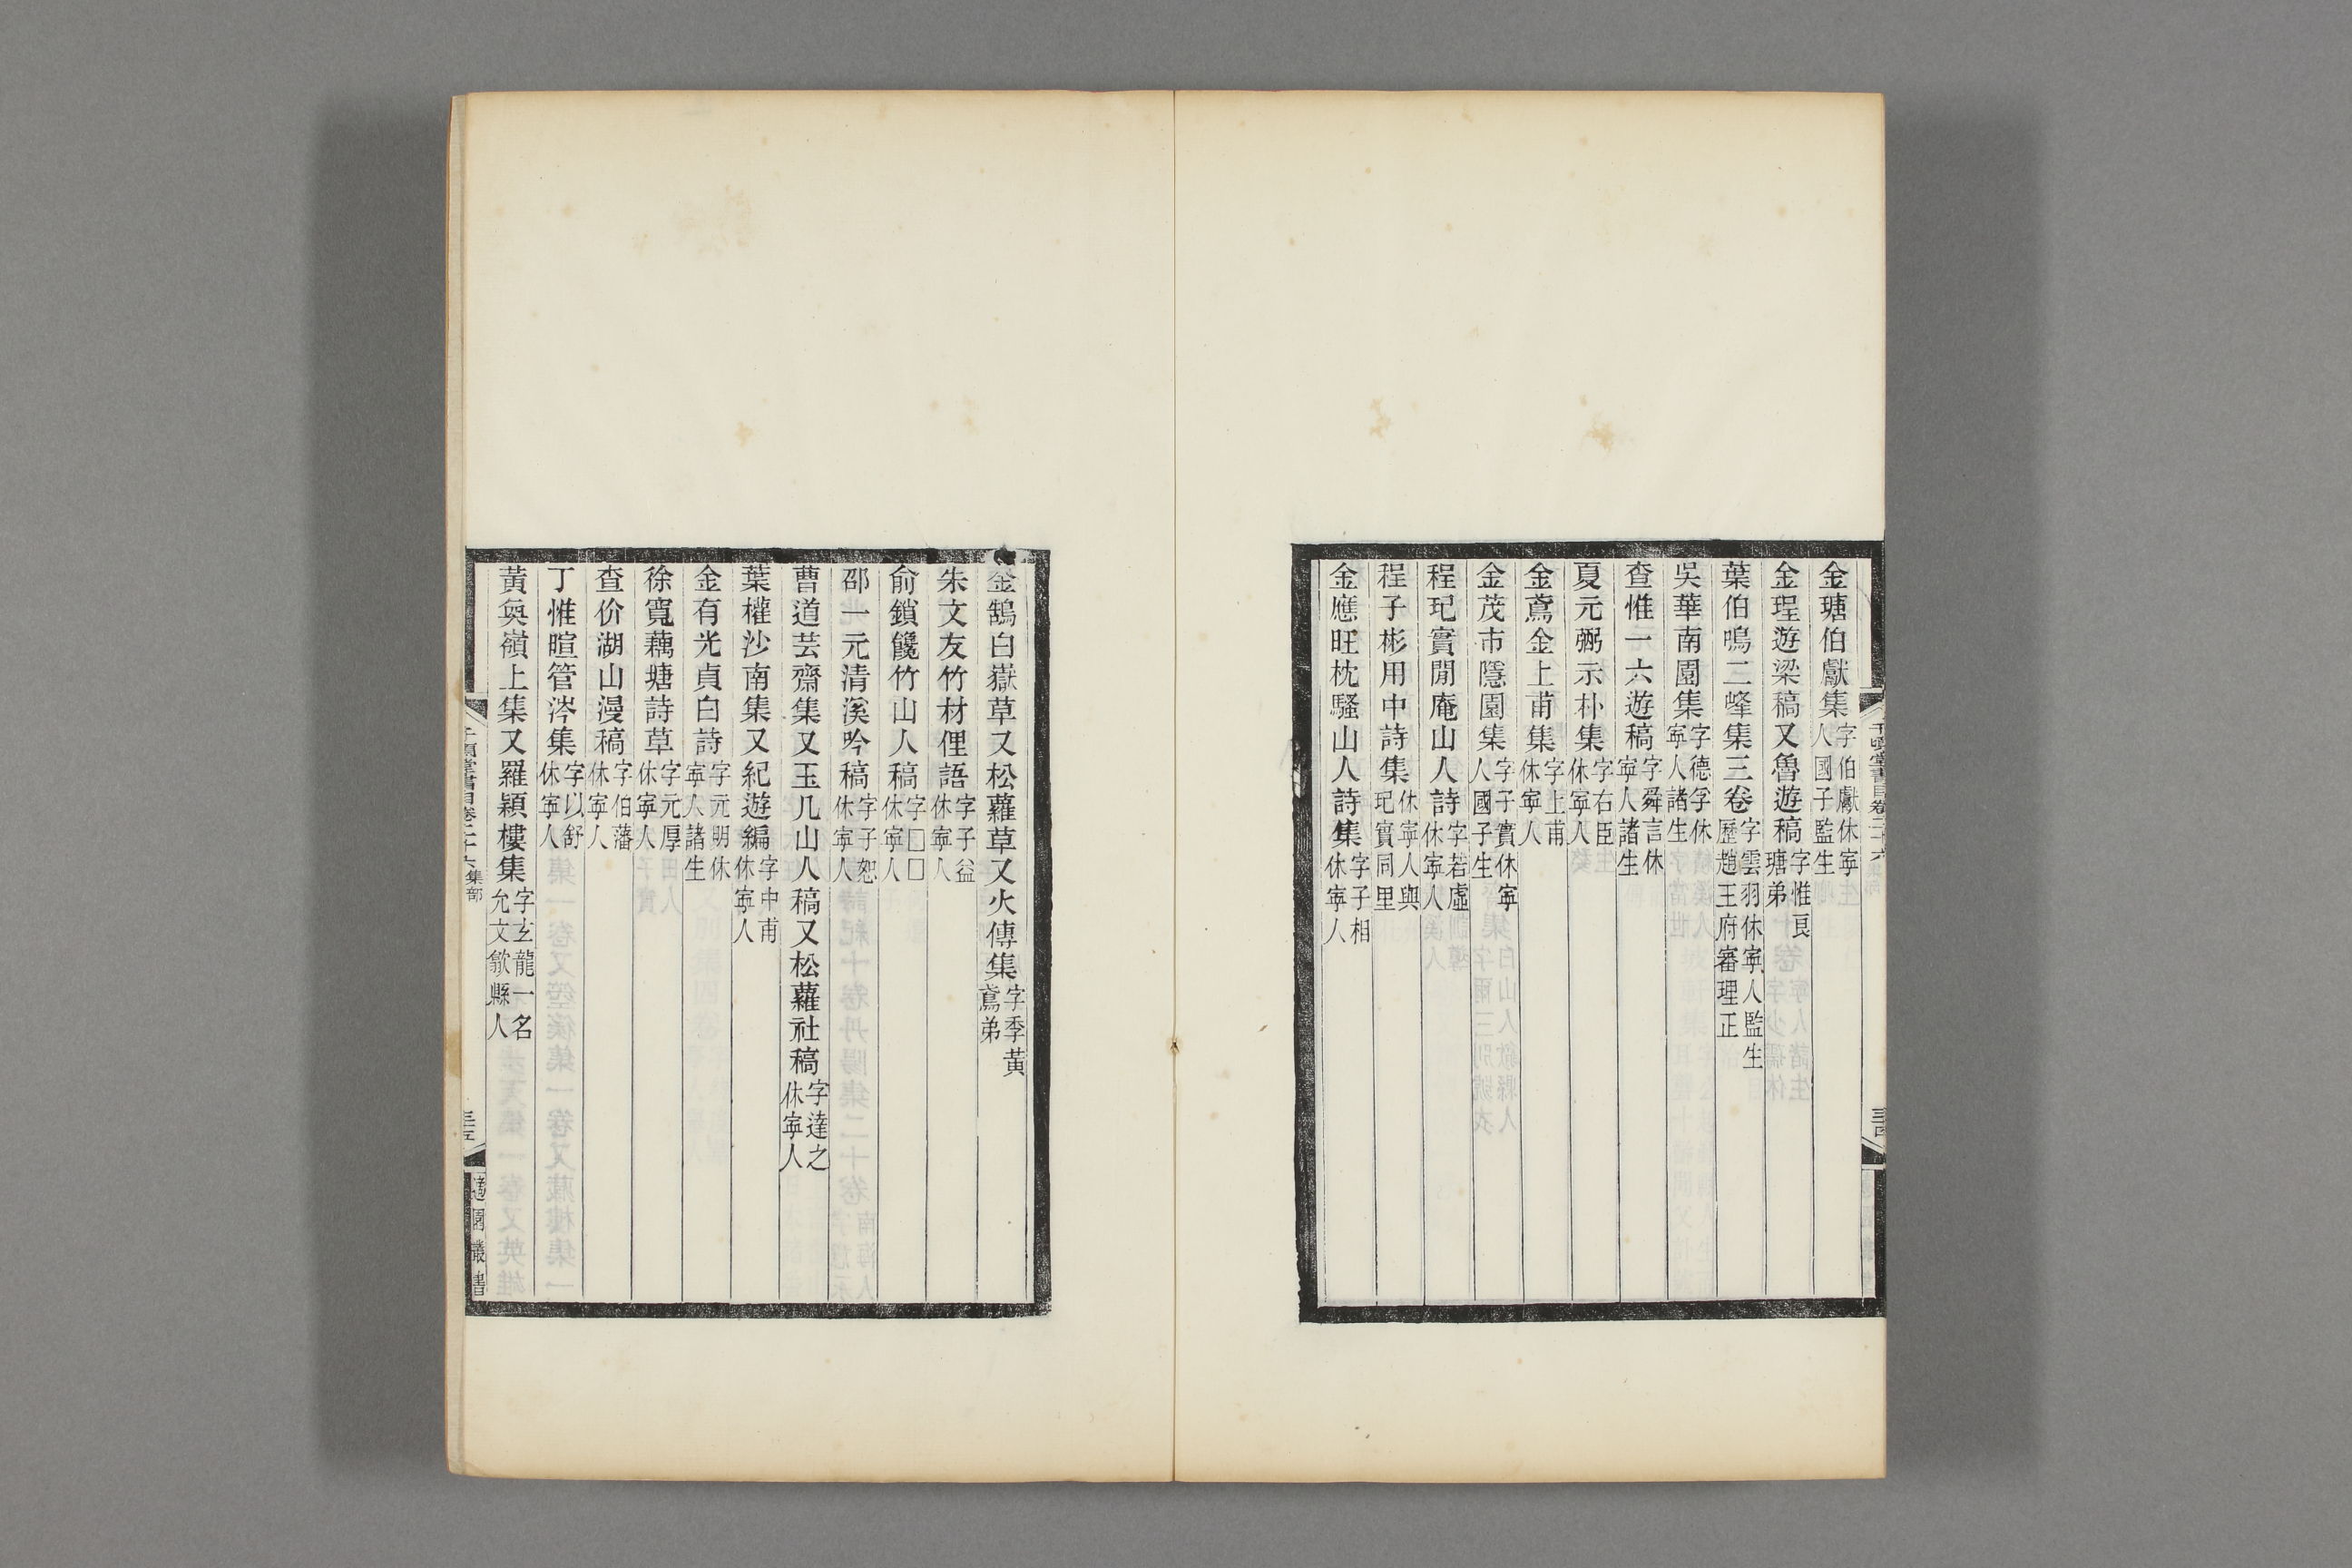 金瑭伯獻集字伯獻休寧人國子監生
金瑆遊梁稿又魯遊稿字惟良瑭弟
葉伯鳴二峰集三卷字雲羽休寧人監生歷趙王府審理正
吳華南園集字德孚休寧人諸生
查惟一六遊稿字舜言休寧人諸生
夏元弼示朴集字右臣休寧人
金鳶金上甫集字上甫休寧人
金茂市隱園集字子實休寧人國子生
程玘實閒庵山人詩字若虛休寧人
程子彬用中詩集休寧人與玘實同里
金應旺枕騷山人詩集字子相休寧人
金鵠白嶽草又松蘿草又火傳集字季黃鳶弟
朱文友竹材俚語字子益休寧人
俞鎖饞竹山人稿字□□休寧人
邵一元清溪吟稿字子恕休寧人
曹道芸齋集又玉几山人稿又松蘿社稿字達之休寧人
葉權沙南集又紀遊編字中甫休寧人
金有光貞白詩字元明休寧人諸生
徐寬藕塘詩草字元厚休寧人
查价湖山漫稿字伯藩休寧人
丁惟暄管涔集字以舒休寧人
黃奐嶺上集又羅穎樓集字玄龍一名允文歙縣人
千頃堂書目卷二十六集部
三五
適園叢書